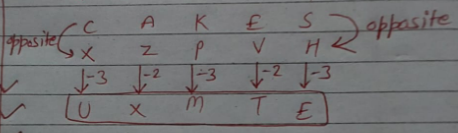 C A K E S opposite
opposite X Z P V H
↓-3 ↓-2 ↓-3 ↓-2 ↓-3
✓ U X M T E